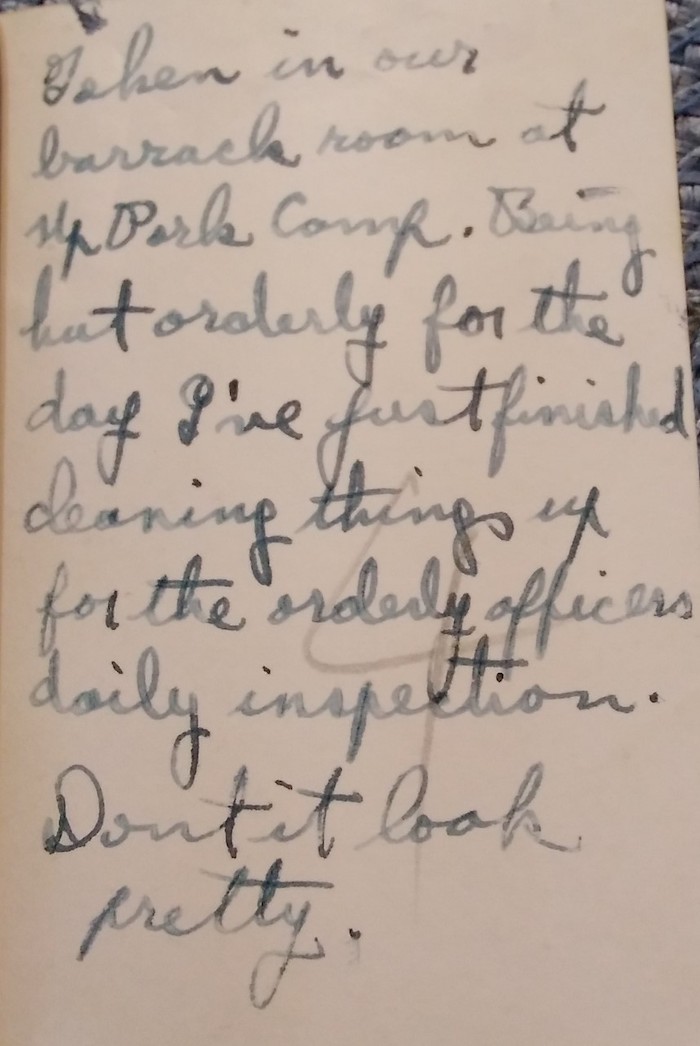 Taken in our
barrack room at
Up Park Camp. Being
hut orderly for the
day I've just finished
cleaning things up
for the orderly officers
daily inspection.
Dont it look
pretty.